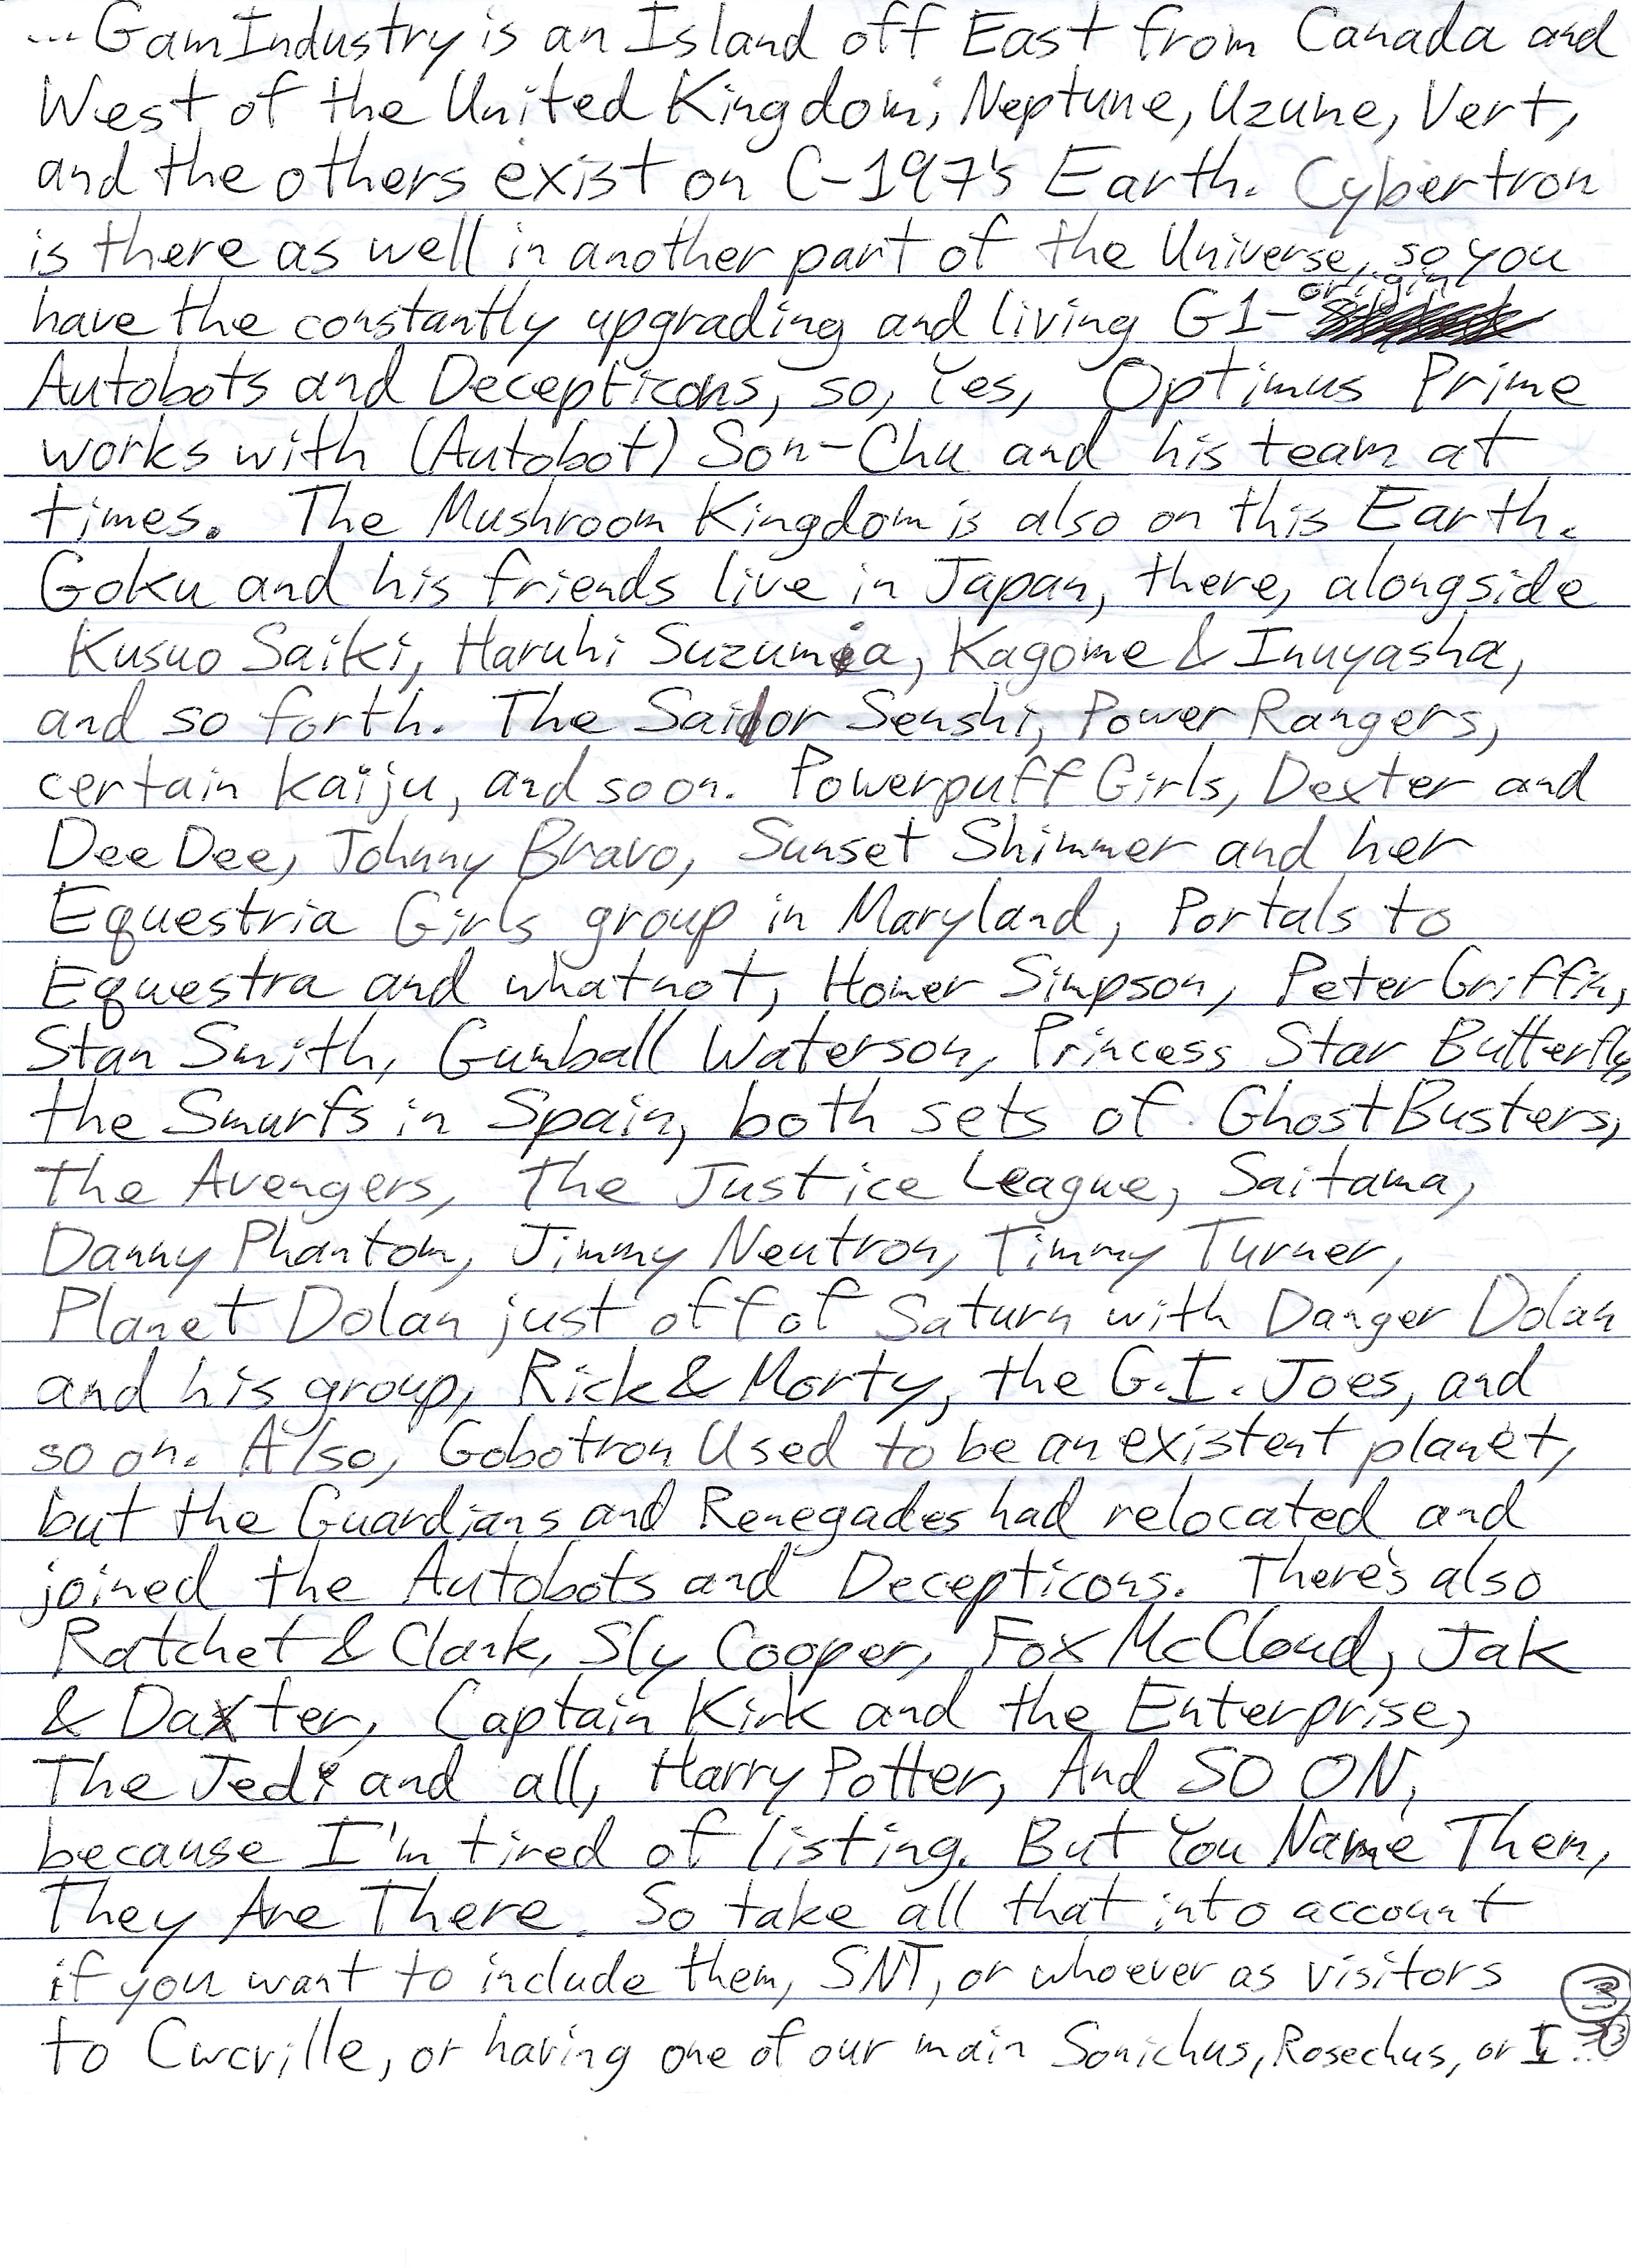 ...GamIndustry is an Island off East from Canada and
West of the United Kingdom; Neptune, Uzune, Vert,
and the others exist on C-197's Earth. Cybertron
is there as well in another part of the Universe, so you
have the constantly upgrading and living G1-origin
Autobots and Decepticons, so, Yes, Optimus Prime
works with (Autobot) Son-Chu and his team at
times. The Mushroom Kingdom is also on this Earth.
Goku and his friends live in Japan, there, alongside
Kusuo Saiki, Haruhi Suzumia, Kagome & Inuyasha,
and so forth. The Sailor Senshi, Power Rangers,
certain kaiju, and so on. Powerpuff Girls, Dexter and
Dee Dee, Johnny Bravo, Sunset Shimmer and her
Equestria Girls group in Maryland, Portals to
Equestra and whatnot, Homer Simpson, Peter Griffin,
Stan Smith, Gumball Waterson, Princess Star Butterfly,
the Smurfs in Spain, both sets of GhostBusters,
The Avengers, The Justice League, Saitama,
Danny Phantom, Jimmy Neutron, Timmy Turner,
Planet Dolan just off of Saturn with Danger Dolan
and his group, Rick & Morty, the G.I. Joes, and
so on. Also, Gobotron Used to be an existent planet,
but the Guardians and Renegades had relocated and
joined the Autobots and Decepticons. There's also
Ratchet & Clank, Sly Cooper, Fox McCloud, Jak
& Daxter, Captain Kirk and the Enterprise,
The Jedi and all, Harry Potter, And SO ON,
because I'm tired of listing. But You Name Them,
They Are There. So take all that into account
if you want to include them, SNT, or whoever as visitors
to Cwcville, or having one of our main Sonichus, Rosechus, or I...
3